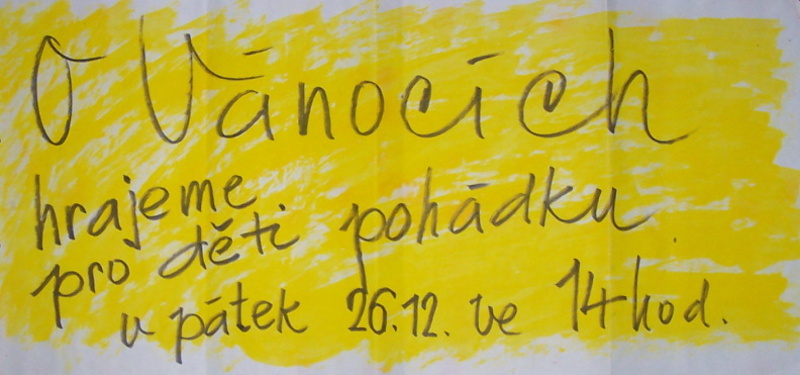 O Vánocích
hrajeme
pro děti pohádku
v pátek 26.12. ve 14 hod.